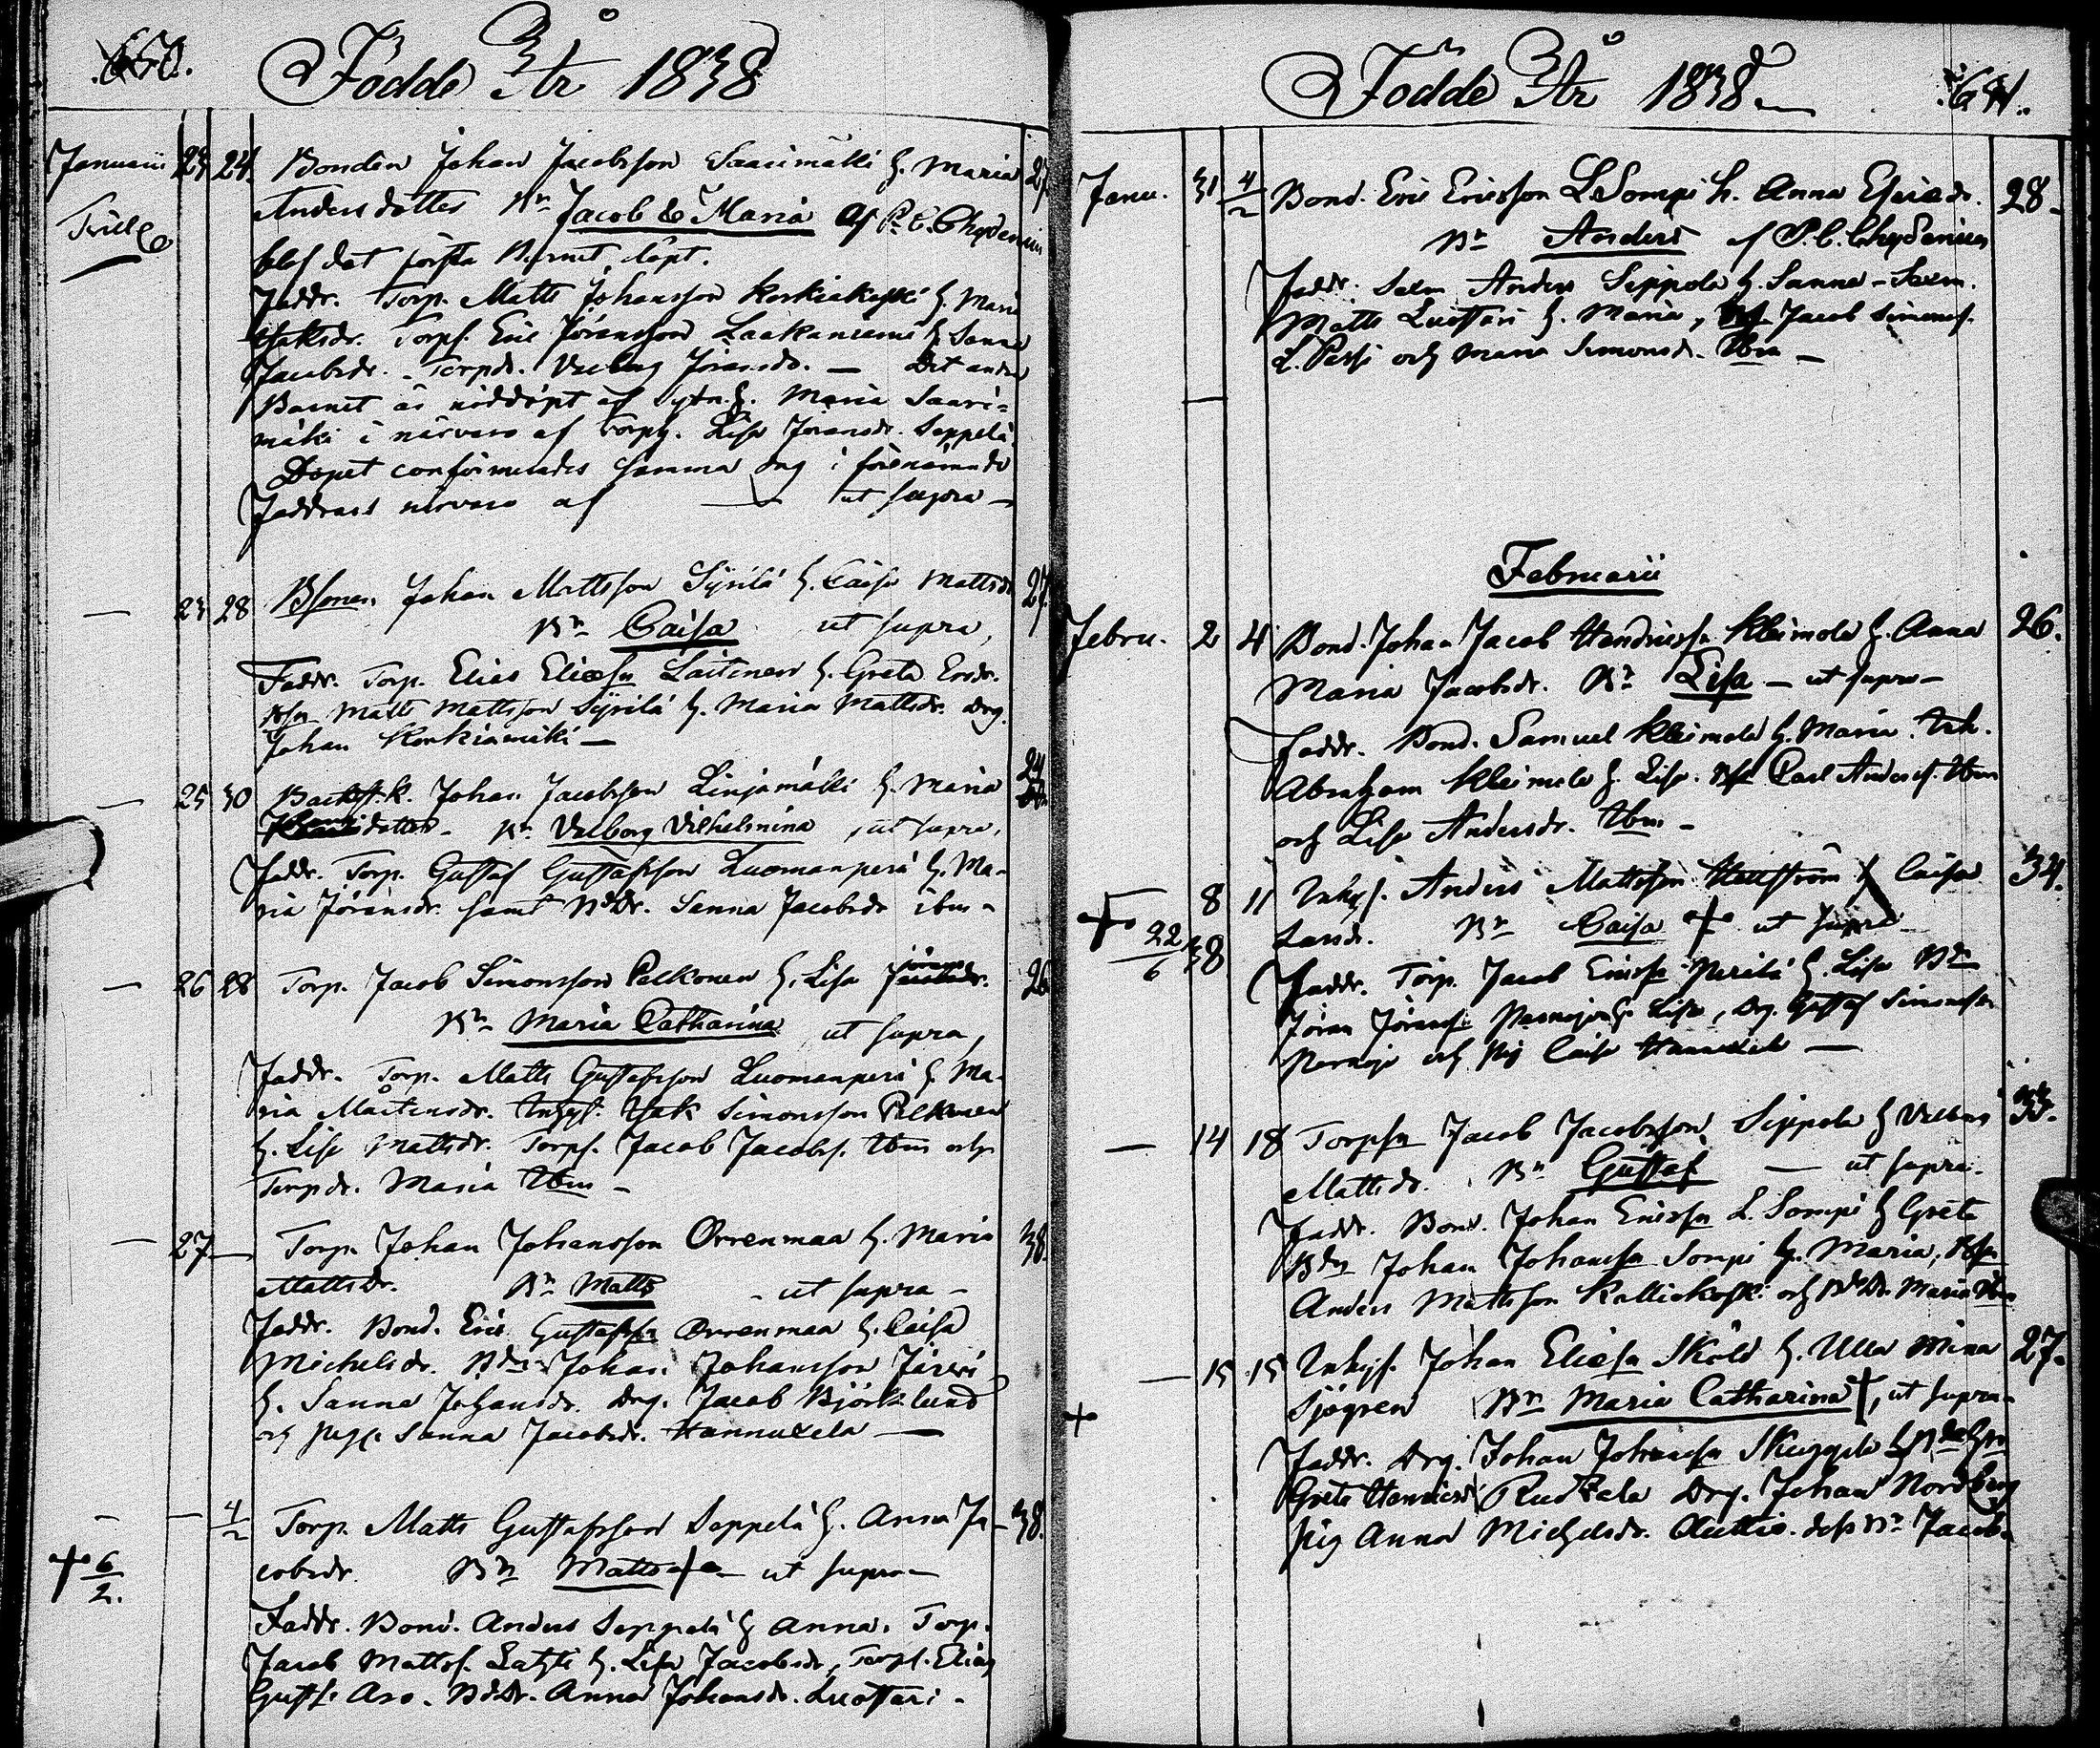 660.
Födde År 1838
Januarii 23 24. Bonden Johan Jacobsson Saarimäki h. Maria 27
Tvill. Andersdotter Bn Jacob & Maria af P. C. Chydenius
blef det första Barnet döpt.
Faddr. Torp. Matts Johansson Korkiakoski h. Maria
Isaksdr. Torps. Eric Jöransson Laakaniemi h. Sanna
Jacobsdr. Torpdr. Valborg Jöransdr. — Det andra
Barnet är nöddöpt af h. Maria Saari=
mäki i närvaro af Lisa Jöransdr. Seppelä
Dopet confirmerades samma dag i förenämnde
Faddrars närvaro af — ut supra —
— 23 28 Bsonen Johan Mattsson Syrilä h. Caisa Mattsdr 27.
Bn Caisa ut supra,
Faddr. Torp. Elias Eliæsn Laitinen h. Greta Ersdr.
Bsn Matt Mattsson Syrilä h. Maria Mattsdr. Drg.
Johan Korkiamäki —
— 25 30 Johan Jacobsson Linjamäki h. Maria 24
dotter. Bn Valborg Vilhelmina, ut supra,
Faddr. Torp. Gustaf Gustafsson Luomanperä h. Ma-
ria Jöransdr. samt BdDr. Sanna Jacobsdr ibm -
— 26 28 Torp. Jacob Simonsson Pelkonen h. Lisa Jöransdr. 26
Bn Maria Catharina ut supra,
Faddr. Torp. Matts Gustafsson Luomanperä h. Ma-
ria Mårtensdr. Inhys. Isak Simonsson Pelkonen
h. Lisa Mattsdr. Torps. Jacob Jacobs. Ibm och
Torpdr. Maria Ibm -
— 27 — Torp. Johan Johansson Orrenmaa h. Maria 38.
Mattsdr. Bn Matts - ut supra -
Faddr. Bond. Eric Gustafsn Orrenmaa h. Caisa
Michelsdr. Bdn Johan Johansson Järvi
h. Sanna Johansdr. Drg. Jacob Björklund
och pig. Sanna Jacobsdr. Hannuxela —
- — 4/2 Torp. Matts Gustafsson Seppelä h. Anna Ja- 38.
† 6/2. cobsdr. Bn Matts † ut supra -
Faddr. Bond. Anders Seppelä h. Anna. Torp.
Jacob Mattss. Lahti h. Lisa Jacobsdr, Torps. Elias
Gustfs. Aro. BdDr. Anna Johansdr. Luostari.
Födde År 1838. 661.
Janu. 31 4/2 Bond. Eric Ericsson L. Sompi h. Anna Esaiædr. 28.
Bn Anders af P. C. Chydenius
Faddr. Anders Seppelä h. Sanna -
Matts Luostari h. Maria, Jacob Simonss.
L. Passi och Maria Simonsdr. Ibm —
Februarii
Febru. 2 4 Bond. Johan Jacob Hendricssn Kleimola h. Anna 26.
Maria Jacobsdr. Bn Lisa — ut supra —
Faddr. Bond. Samuel Kleimola h. Maria. Inh.
Abraham Kleimola h. Lisa. Bsn Carl Anderss. Ibm
och Lisa Andersdr. Ibm -
8 11 Inhys. Anders Mattsson h Caisa 34.
† 22/6 38 Larsdr. Bn Caisa † ut supra
Faddr. Torp. Jacob Ericssn Perilä h. Lisa Bdn
Jöran Jöranss. h. Lisa, Drg. Gustaf Simonssn
och pig Caisa Hannuxela —
— 14 18 Torpsn Jacob Jacobsson Seppelä h Valborg 33.
Mattsdr. Bn Gustaf — ut supra.
Faddr. Bond. Johan Ericssn L. Sompi h Greta
Bdn Johan Johanssn Sompi h. Maria, Bsn
Anders Mattsson Kalliokoski och BdDr. Maria Ibm
— 15 15 Inhys. Johan Eliæsn Sköld h. Ulla Mina 27.
† Sjögren Bn Maria Catharina †, ut supra -
Faddr. Drg. Johan Johanssn
Greta Rudkala Drg. Johan Nordberg
pig Anna Michelsdr. Jacob